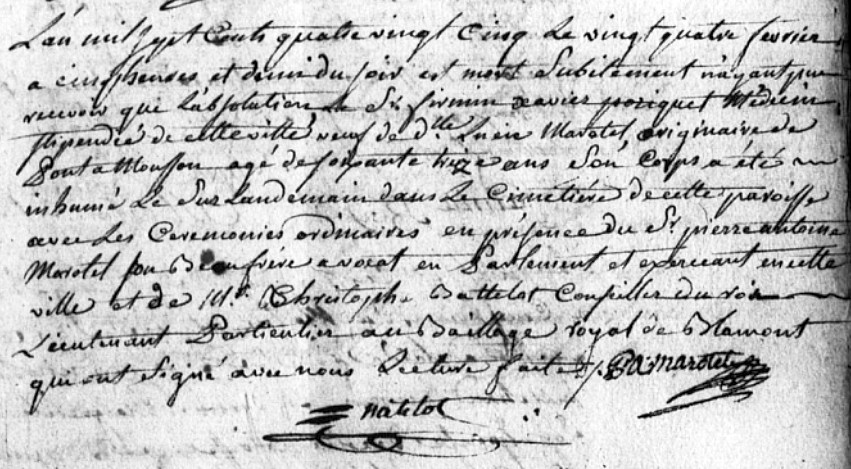 L'an mil sept cents quatre vingt cinq le vingt quatre fevrier
a cinq heures et demi du soir est mort subitement n'ayant pu
recevoir que l'absolution le Sr. firmin xavier poriquet Médecin
stipendié de cette ville, veuf de dlle Lucie Marotel originaire de
Pont a Mousson agé de soixante treize ans Son Corps a été
inhumé Le Surlandemain dans Le Cimetiére de cette paroisse
avec Les Ceremonies ordinaires en présence du Sr. pierre antoine
Marotel son Beaufrére avocat en Parlement et exercant en cette
ville et de Mr. Christophe Battelot Conseiller du roi
Lieutenant Particulier au Baillage royal de Blamont
qui ont signé avec nous Lecture faite /. P.A. Marotel
Batelot